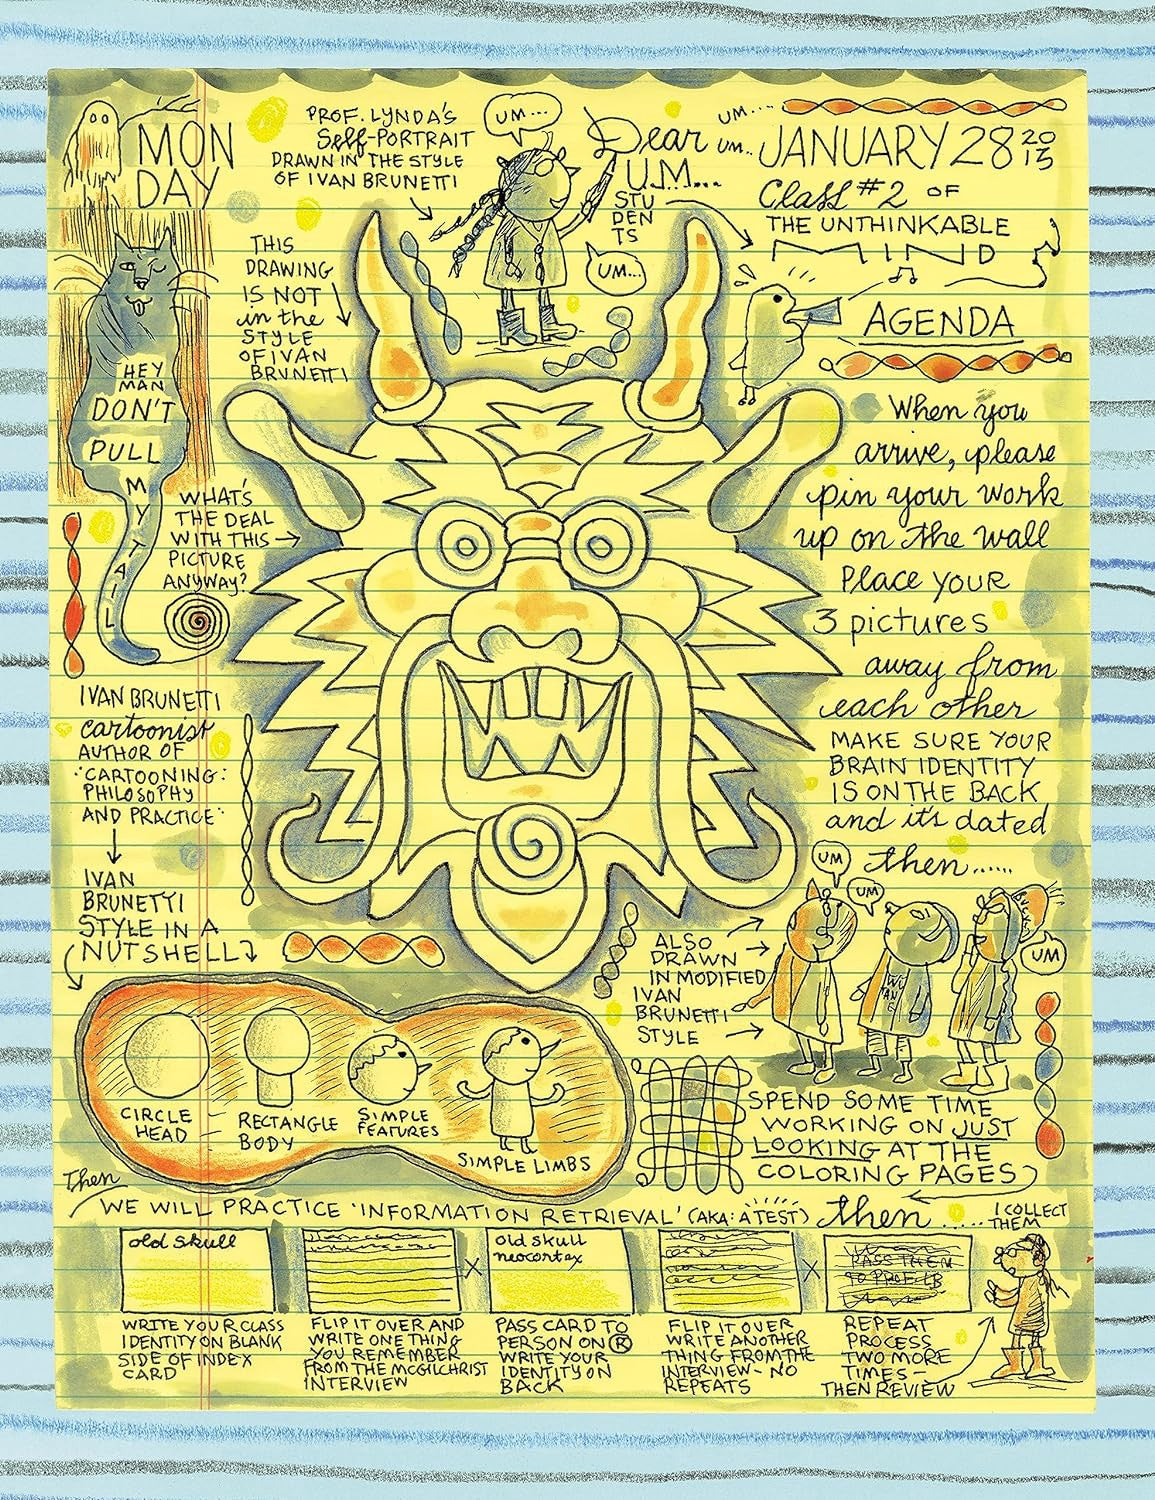 MON
DAY
PROF. LYNDA'S
Self-PORTRAIT
DRAWN IN THE STYLE
OF IVAN BRUNETTI
UM...
Dear
U.M...
STU
DEN
TS
UM...
UM....
UM..
JANUARY 28 2013
Class #2 OF
THE UNTHINKABLE
MIND
AGENDA
THIS
DRAWING
IS NOT
in the
STYLE
OF IVAN
BRUNETTI
HEY
MAN
DON'T
PULL
MY TAIL
WHAT'S
THE DEAL
WITH THIS
PICTURE
ANYWAY?
When you
arrive, please
pin your work
up on the wall
Place YOUR
3 pictures
away from
each other
MAKE SURE YOUR
BRAIN IDENTITY
IS ON THE BACK
and it's dated
then......
IVAN BRUNETTI
cartoonist
AUTHOR OF
"CARTOONING:
PHILOSOPHY
AND PRACTICE"
IVAN
BRUNETTI
STYLE IN A
NUTSHELL
CIRCLE
HEAD
RECTANGLE
BODY
SIMPLE
FEATURES
SIMPLE LIMBS
ALSO
DRAWN
IN MODIFIED
IVAN
BRUNETTI
STYLE
UM
UM
UM
SPEND SOME TIME
WORKING ON JUST
LOOKING AT THE
COLORING PAGES
Then
WE WILL PRACTICE 'INFORMATION RETRIEVAL' (AKA: A TEST) then......
I COLLECT
THEM
old skull
WRITE YOUR CLASS
IDENTITY ON BLANK
SIDE OF INDEX
CARD
FLIP IT OVER AND
WRITE ONE THING
YOU REMEMBER
FROM THE MCGILCHRIST
INTERVIEW
old skull
neocortex
PASS CARD TO
PERSON ON R
WRITE YOUR
IDENTITY ON
BACK
FLIP IT OVER
WRITE ANOTHER
THING FROM THE
INTERVIEW - NO
REPEATS
PASS THEM
TO PROF LB
REPEAT
PROCESS
TWO MORE
TIMES -
THEN REVIEW